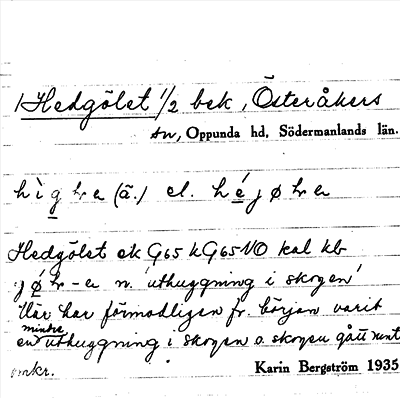 Hedgölet 1/2 bek, Österåkers
sn, Oppunda hd, Södermanlands län.
(ä.) el.
Hedgölet ek G65 kG65 NO kal kb
n. 'uthuggning i skogen'
Här har förmodligen fr. början varit
mindre
en uthuggning i skogen o. skogen gått runt
omkr. Karin Bergström 1935